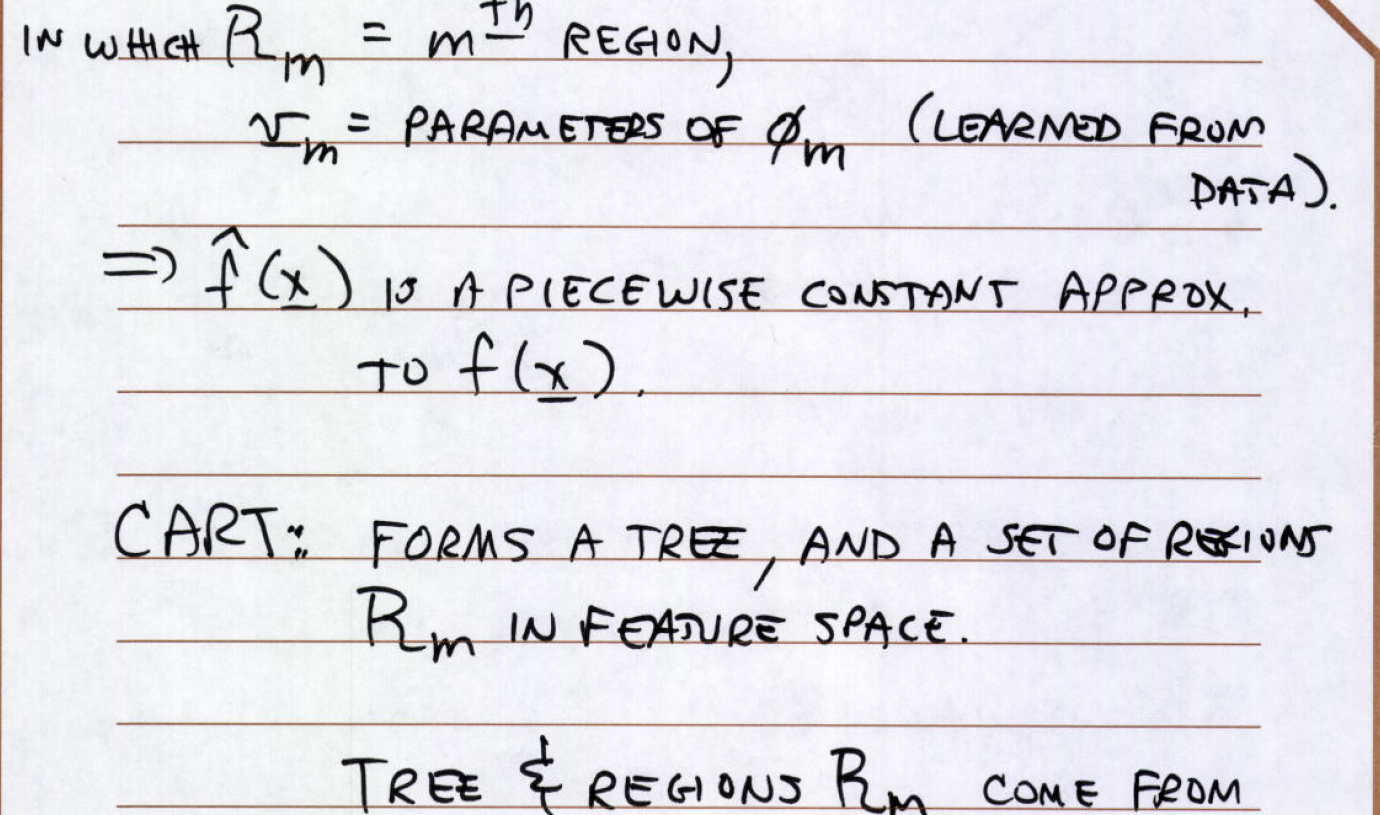 IN WHICH R_m = m^th REGION,
v_m = PARAMETERS OF φ_m (LEARNED FROM
DATA).
⇒ f̂(x) IS A PIECEWISE CONSTANT APPROX.
TO f(x).
CART: FORMS A TREE, AND A SET OF REGIONS
R_m IN FEATURE SPACE.
TREE & REGIONS R_m COME FROM